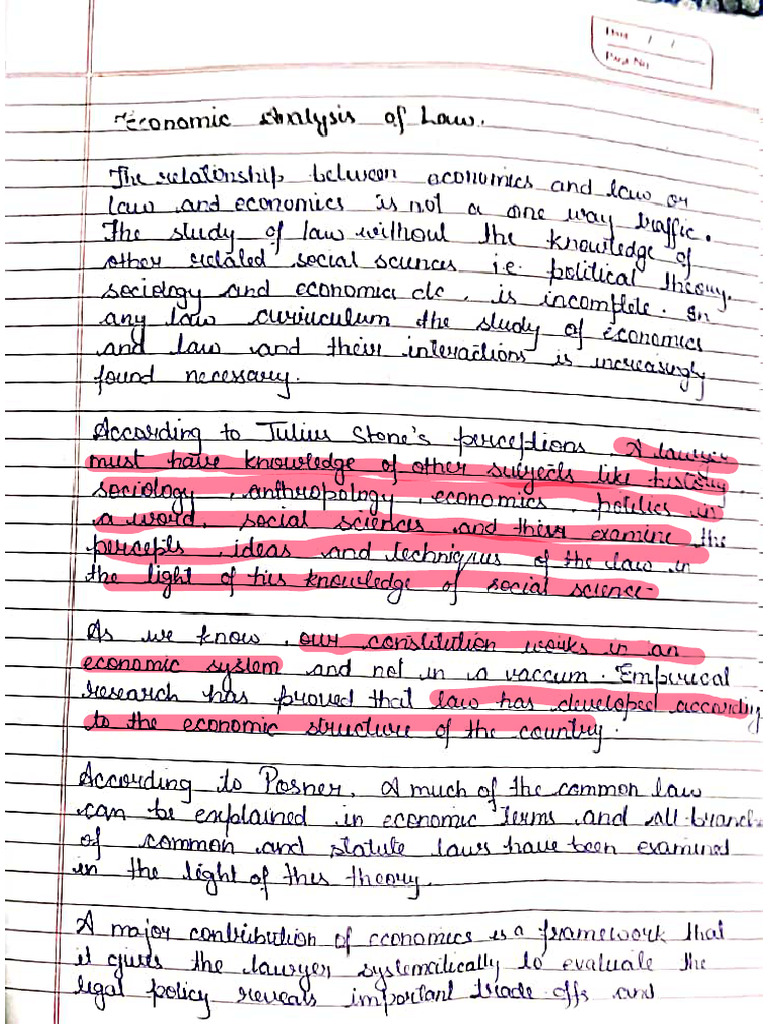 Date / /
Page No
Economic Analysis of Law.
The relationship between economics and law or
law and economics is not a one way traffic.
The study of law without the knowledge of
other related social sciences i.e. political theory,
sociology and economics etc, is incomplete. In
any law curiuculum the study of economics
and law and their interactions is increasingly
found necessary.
According to Julius Stone's perceptions, A lawyer
must have knowledge of other subjects like history,
sociology, anthropology, economics, politics in
a word, social sciences and their examine the
percepts, ideas and techniques of the law in
the light of his knowledge of social science.
As we know, our constitution works in an
economic system and not in a vaccum. Empirical
research has proved that law has developed according
to the economic structure of the country.
According to Posner, A much of the common law
can be explained in economic terms and all branch
of common and statute laws have been examined
in the light of this theory.
A major contribution of economics is a framework that
it gives the lawyer systematically to evaluate the
legal policy reveals important trade offs and